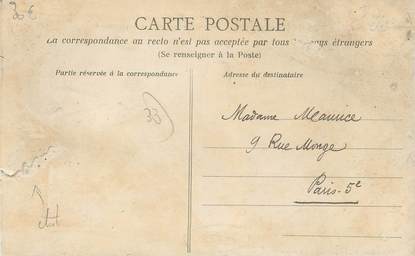 30€
CARTE POSTALE
La correspondance au recto n'est pas acceptée par tous pays étrangers
(Se renseigner à la Poste)
Partie réservée à la correspondance
Adresse du destinataire
33
Madame Maurice
9 Rue Monge
Paris-5e